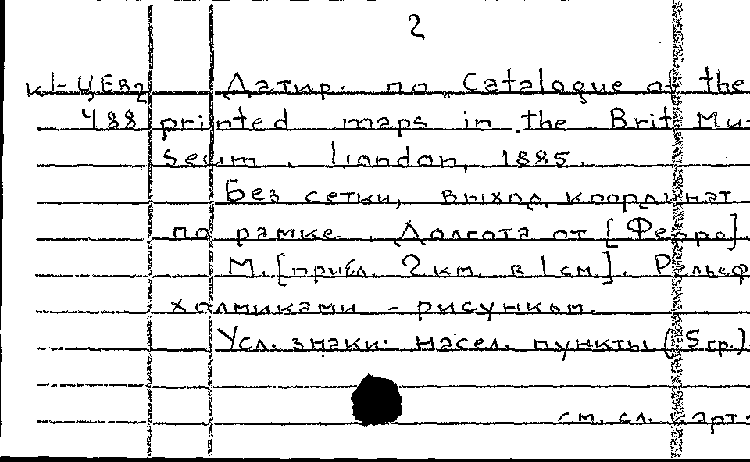 2
К1-ЦЕв2 Датир. по Catalogue of the
488 printed maps in the Brit Mu-
seum. London, 1885.
Без сетки, выход координат
по рамке. Долгота от [Ферро].
М. [прибл. 2 км. в 1 см.]. Рельеф
холмиками - рисунком.
Усл. знаки: насел. пункты (5 гр.)
см. сл. карт.